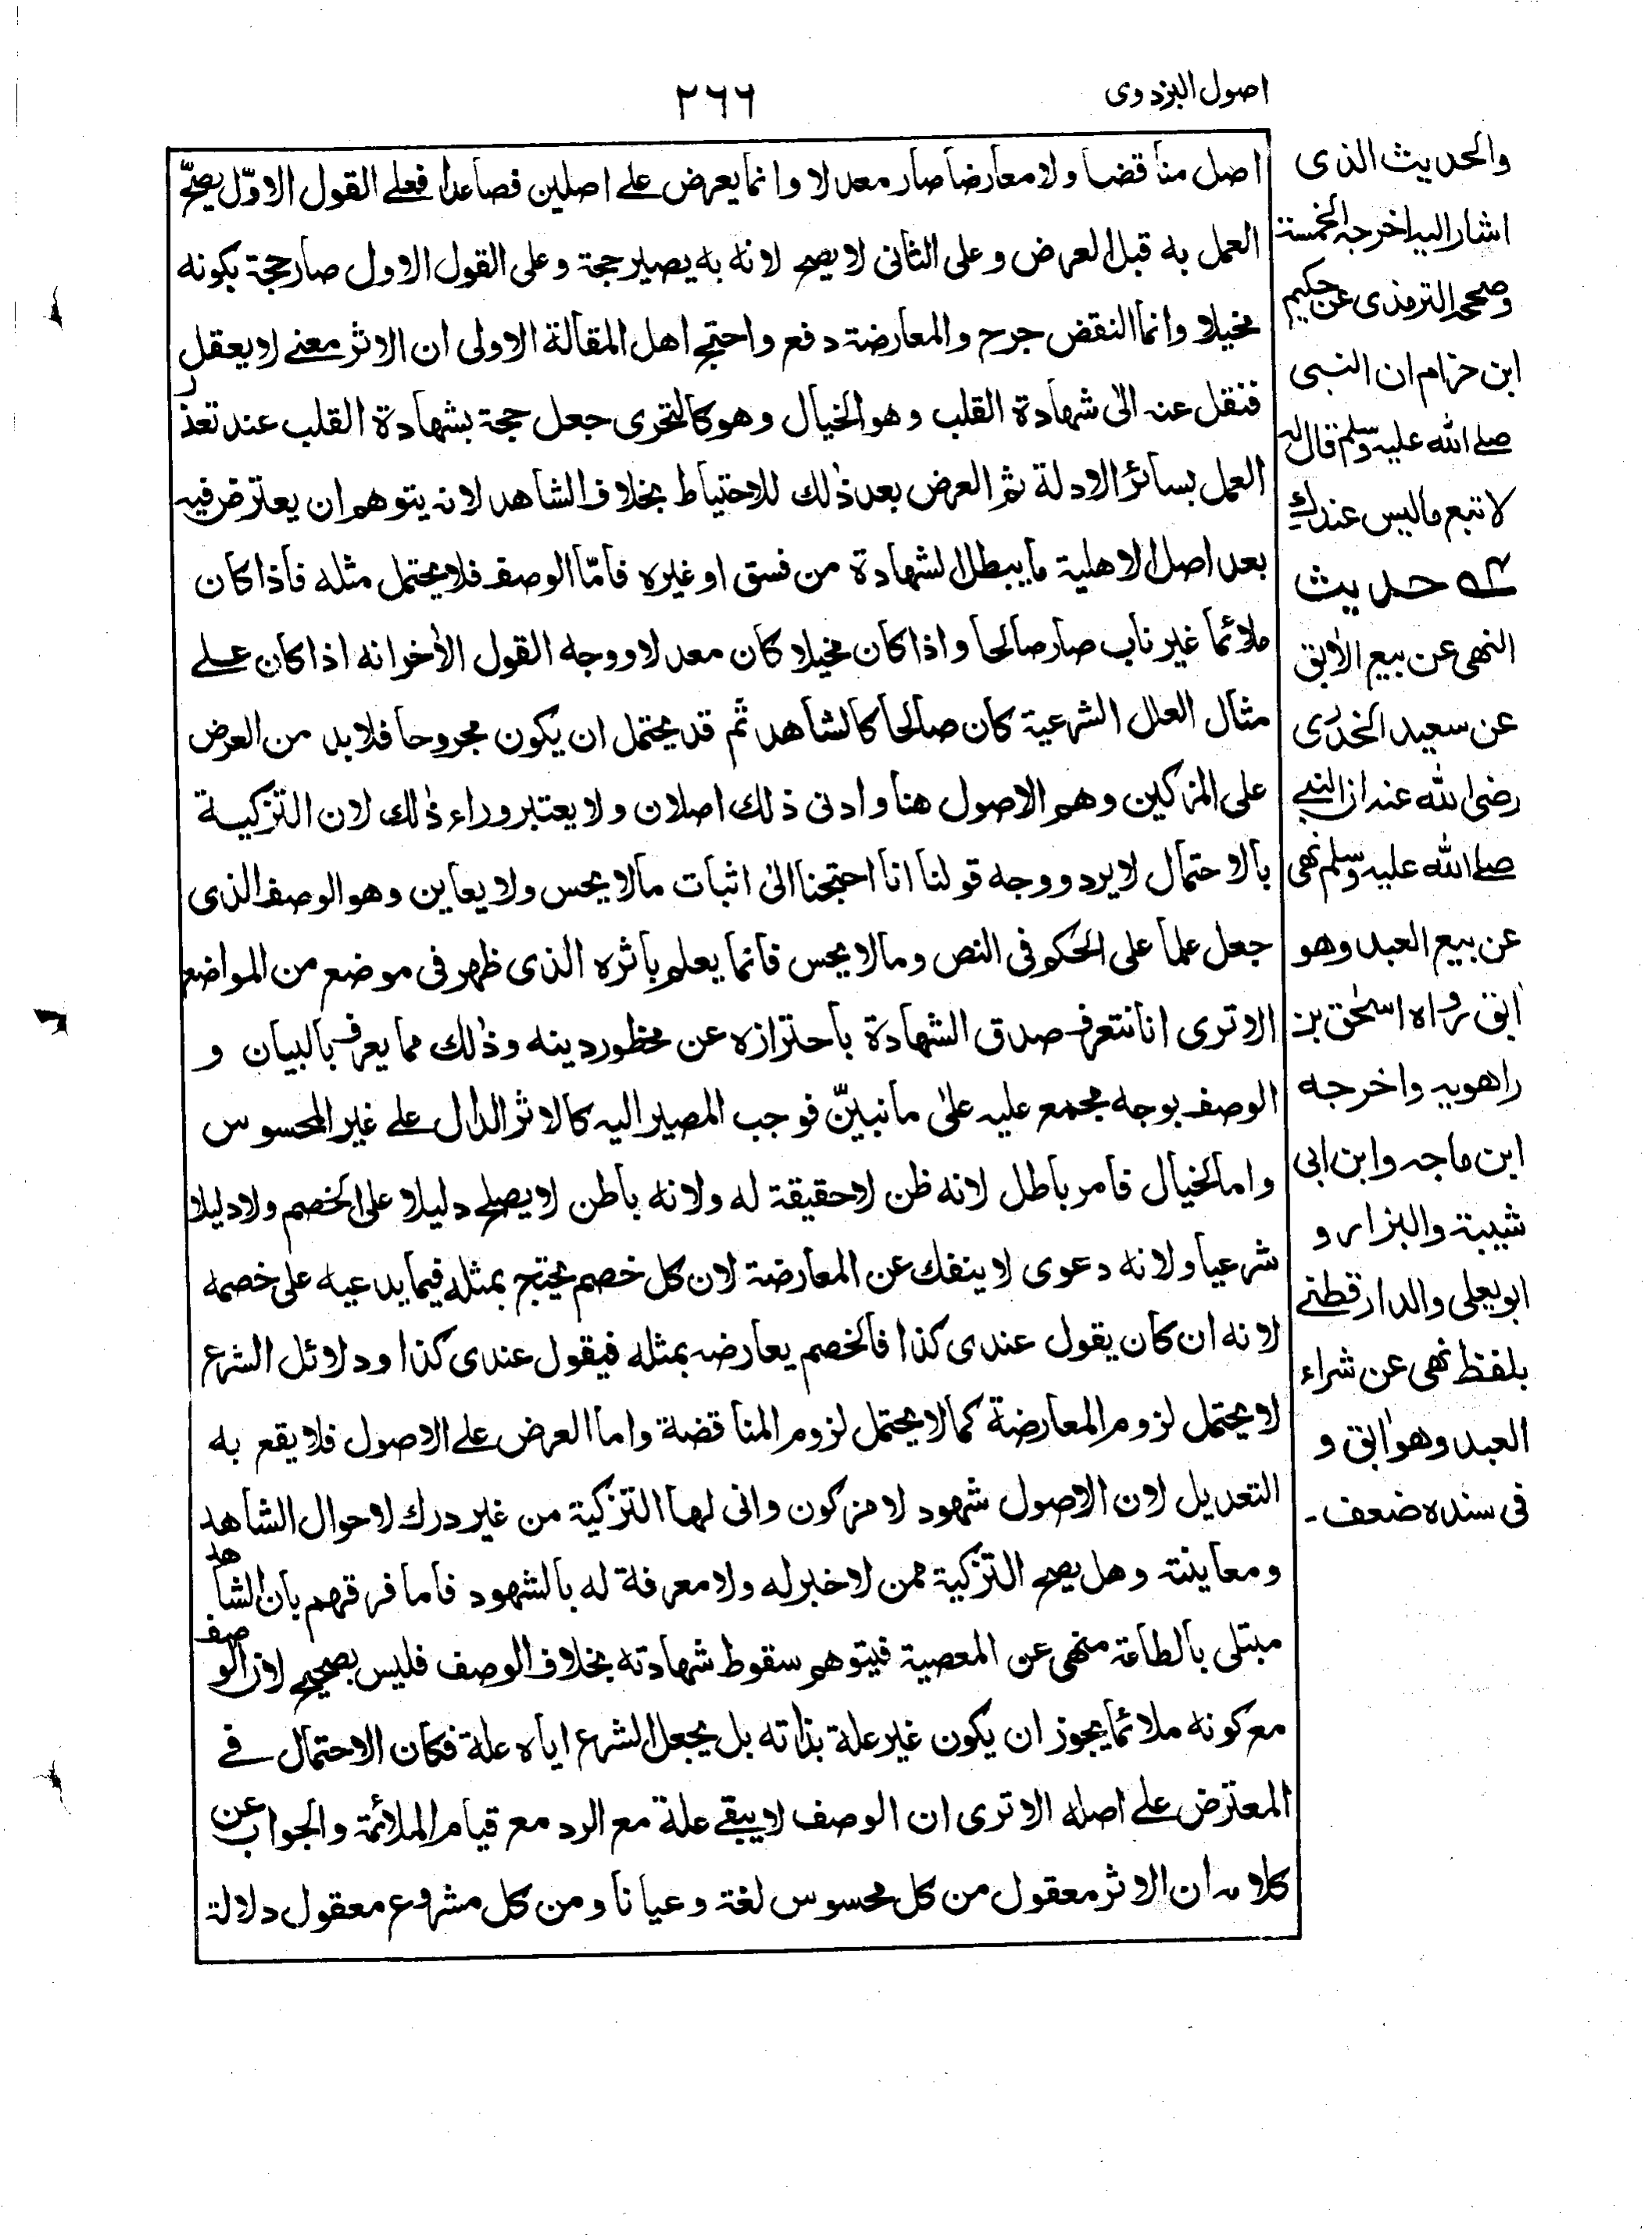 اصول البزدوى
٢٦٦
اصل مناقضا ولا معارضا صار معدلا وانما يعرض على اصلين فصاعدا فعلى القول الاوّل يصحّ
العمل به قبل العرض وعلى الثانى لا يصح لانه به يصير حجة وعلى القول الاول صار حجة بكونه
مخيلا وانما النقض جرح والمعارضة دفع واحتج اهل المقالة الاولى ان الاثر معنى لا يعقل
فنقل عنه الى شهادة القلب وهو الخيال وهو كالتحرى جعل حجة بشهادة القلب عند تعذر
العمل بسائر الادلة ثم العرض بعد ذلك للاحتياط بخلاف الشاهد لانه يتوهم ان يعترض فيه
بعد اصل الاهلية ما يبطل الشهادة من فسق او غيره فامّا الوصف فلا يحتمل مثله فاذا كان
ملائما غير ناب صار صالحا واذا كان مخيلا كان معدلا ووجه القول الاٰخر انه اذا كان على
مثال العلل الشرعية كان صالحا كالشاهد ثم قد يحتمل ان يكون مجروحا فلا بد من العرض
على المزكين وهم الاصول هنا وادنى ذلك اصلان ولا يعتبر وراء ذلك لان التزكية
بالاحتمال لا يرد ووجه قولنا انا احتجنا الى اثبات مالا يحس ولا يعاين وهو الوصف الذى
جعل علما على الحكم فى النص ومالا يحس فانما يعلم باثره الذى ظهر فى موضع من المواضع
الا ترى انا نتعرف صدق الشهادة باحترازه عن محظور دينه وذلك مما يعرف بالبيان و
الوصف بوجه مجمع عليه على ما نبيّن فوجب المصير اليه كالاثر الدال على غير المحسوس
واما الخيال فامر باطل لانه ظن لا حقيقة له ولانه باطن لا يصلح دليلا على الخصم ولا دليلا
شرعيا ولانه دعوى لا ينفك عن المعارضة لان كل خصم يحتج بمثله فيما يدعيه على خصمه
لانه ان كان يقول عندى كذا فالخصم يعارضه بمثله فيقول عندى كذا ودلائل الشرع
لا يحتمل لزوم المعارضة كما لا يحتمل لزوم المناقضة واما العرض على الاصول فلا يقع به
التعديل لان الاصول شهود لا مزكون وانى لها التزكية من غير درك لاحوال الشاهد
ومعاينته وهل يصح التزكية ممن لا خبر له ولا معرفة له بالشهود فاما فرقهم بان الشاهد
مبتلى بالطاعة منهى عن المعصية فيتوهم سقوط شهادته بخلاف الوصف فليس بصحيح لان الوصف
مع كونه ملائما يجوز ان يكون غير علة بذاته بل يجعل الشرع اياه علة فكان الاحتمال فى
المعترض على اصله الا ترى ان الوصف لا يبقى علة مع الرد مع قيام الملائمة والجواب عن
كلامه ان الاثر معقول من كل محسوس لغة وعيانا ومن كل مشروع معقول دلالة
والحديث الذى
اشار اليه اخرجه الخمسة
وصححه الترمذى عن حكيم
ابن حزام ان النبى
صلى الله عليه وسلم قال له
لا تبع ما ليس عندك
حديث
النهى عن بيع الاٰبق
عن سعيد الخدرى
رضى الله عنه ان النبى
صلى الله عليه وسلم نهى
عن بيع العبد وهو
اٰبق رواه اسحٰق بن
راهويه واخرجه
ابن ماجه وابن ابى
شيبة والبزار و
ابو يعلى والدارقطنى
بلفظ نهى عن شراء
العبد وهو اٰبق و
فى سنده ضعف۔